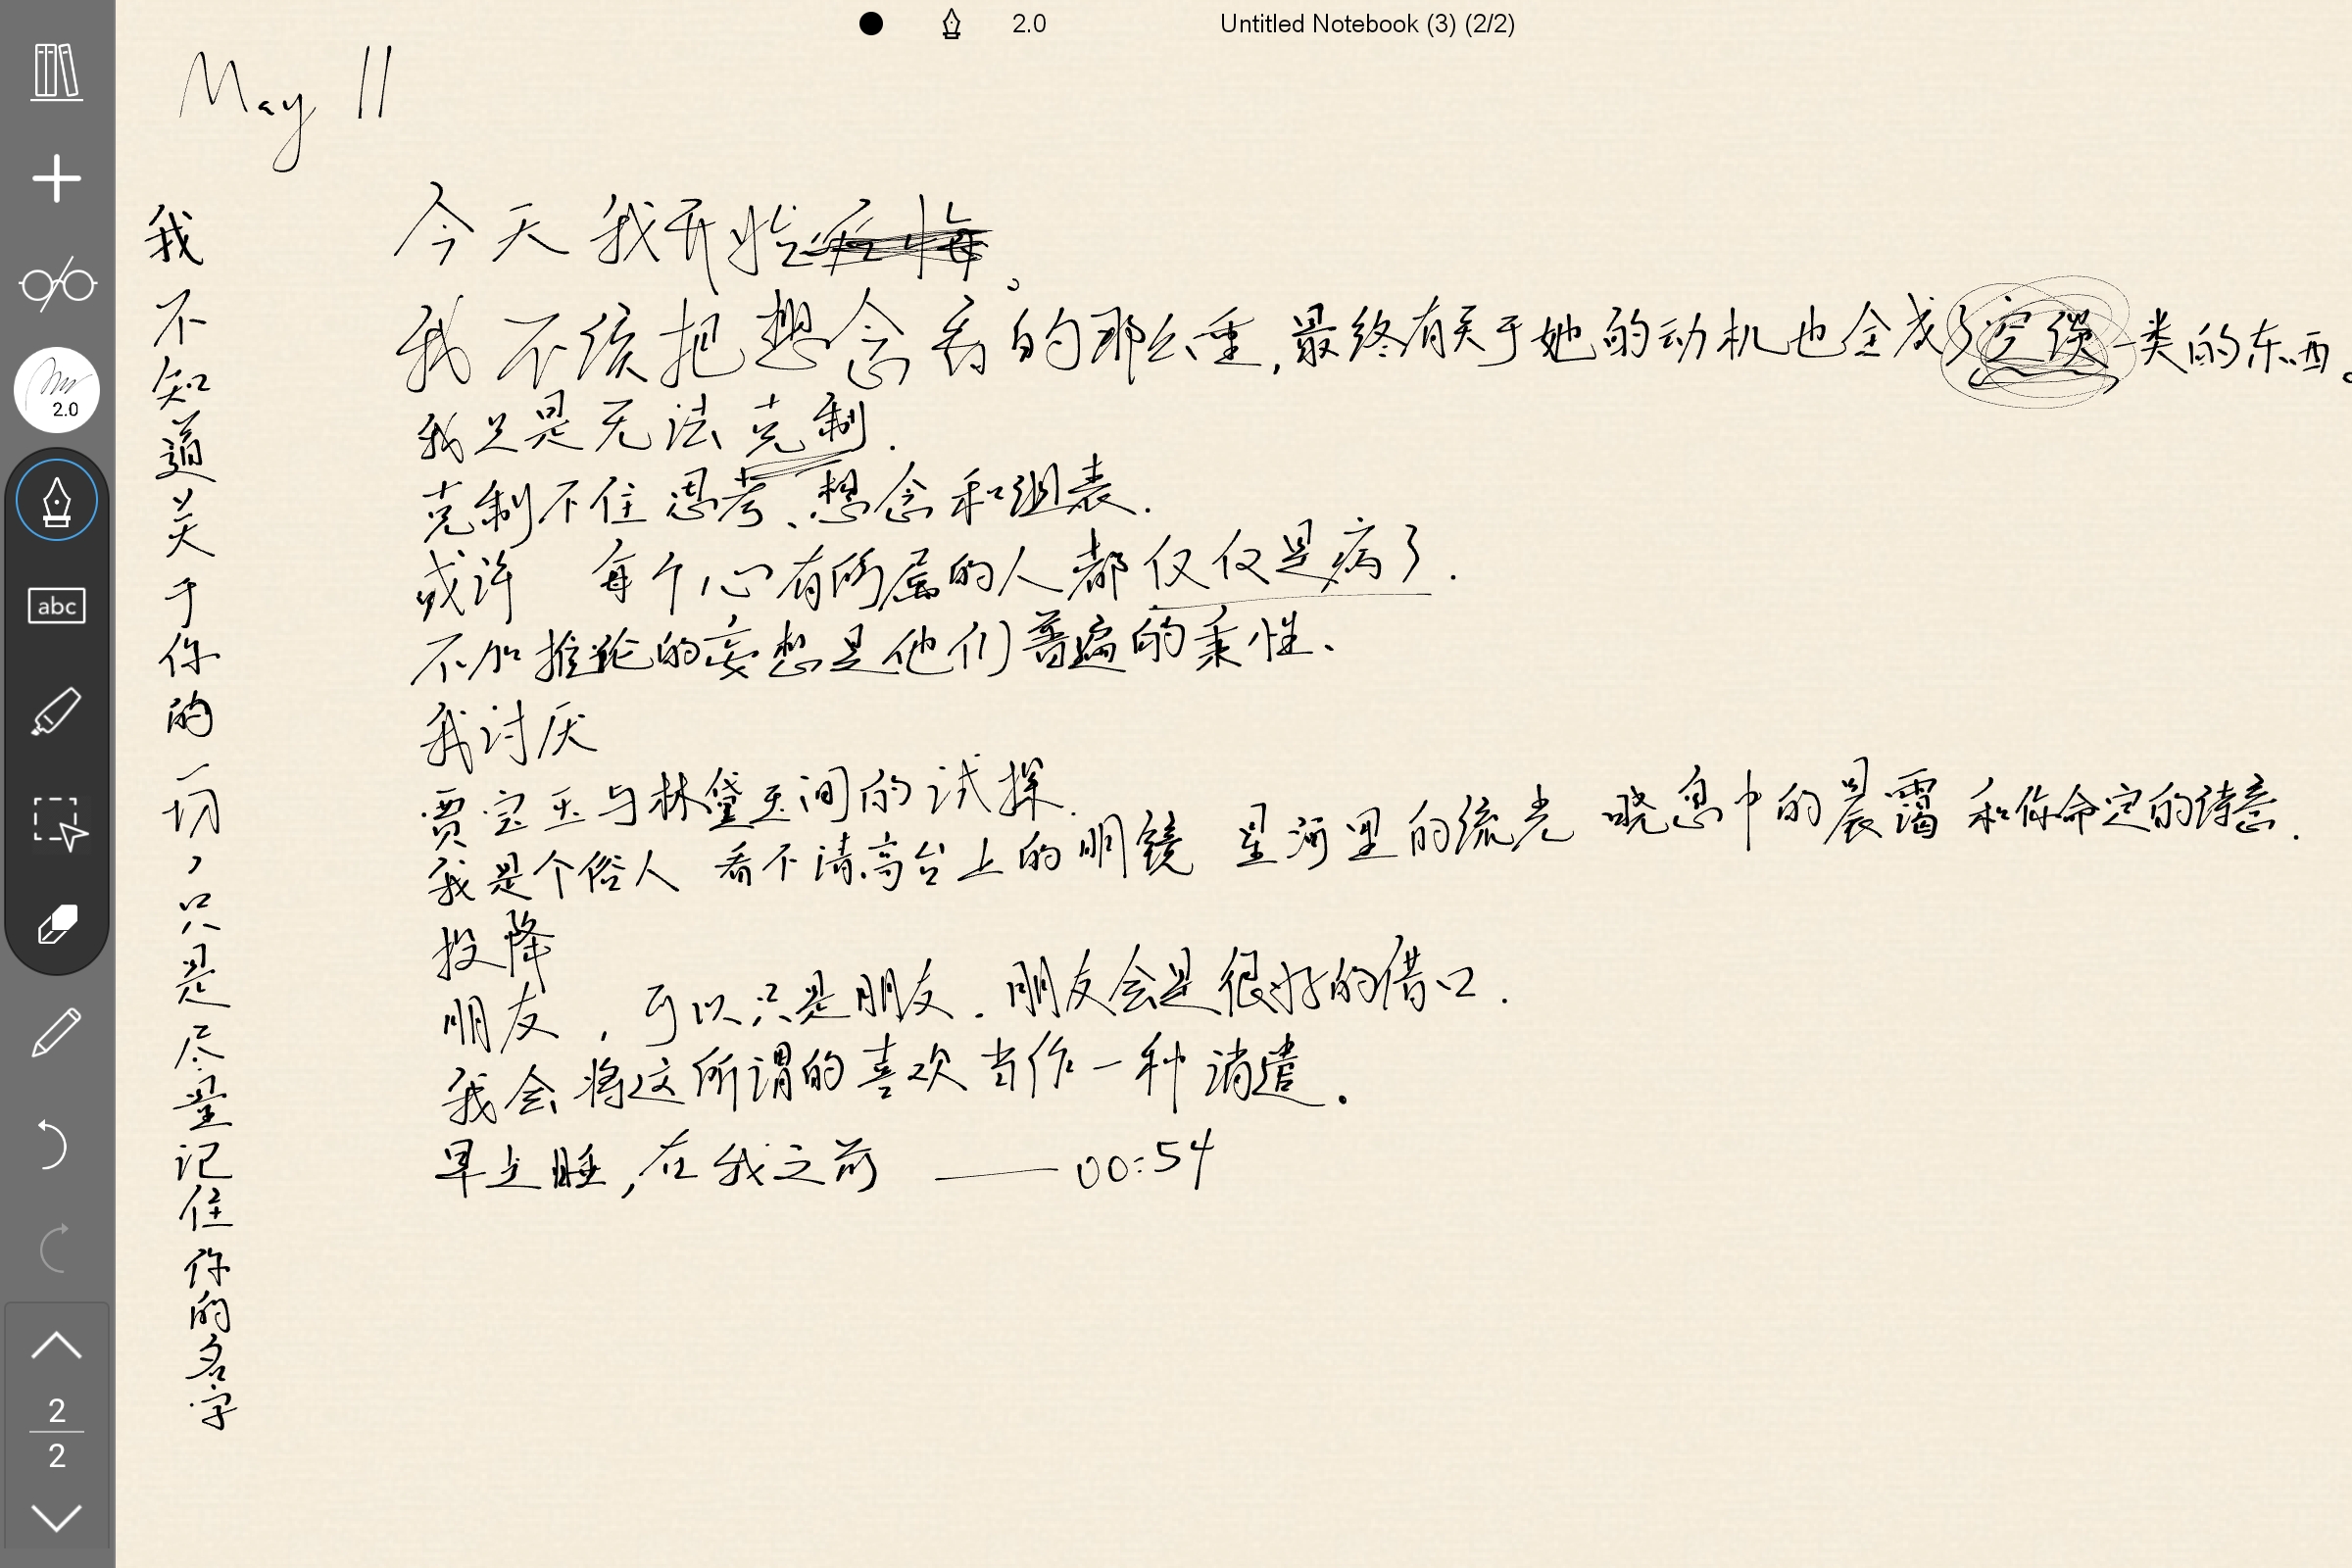 2.0 Untitled Notebook (3) (2/2)
May 11
今天我开始后悔。
我不该把想念看的那么重,最终有关于她的动机也全成了空谈一类的东西。
我只是无法克制.
克制不住思考、想念和组表.
或许 每个心有所属的人都仅仅是病了.
不加推论的妄想是他们普遍的秉性、
我讨厌
贾宝玉与林黛玉间的试探.
我是个俗人 看不清高台上的明镜 星河里的流光 晓息中的晨霭 和你命定的诗意.
投降
朋友,可以只是朋友.朋友会是很好的借口.
我会将这所谓的喜欢当作一种消遣.
早点睡,在我之前 ——00:54
我不知道关于你的一切,只是尽量记住你的名字
2.0
abc
2
2